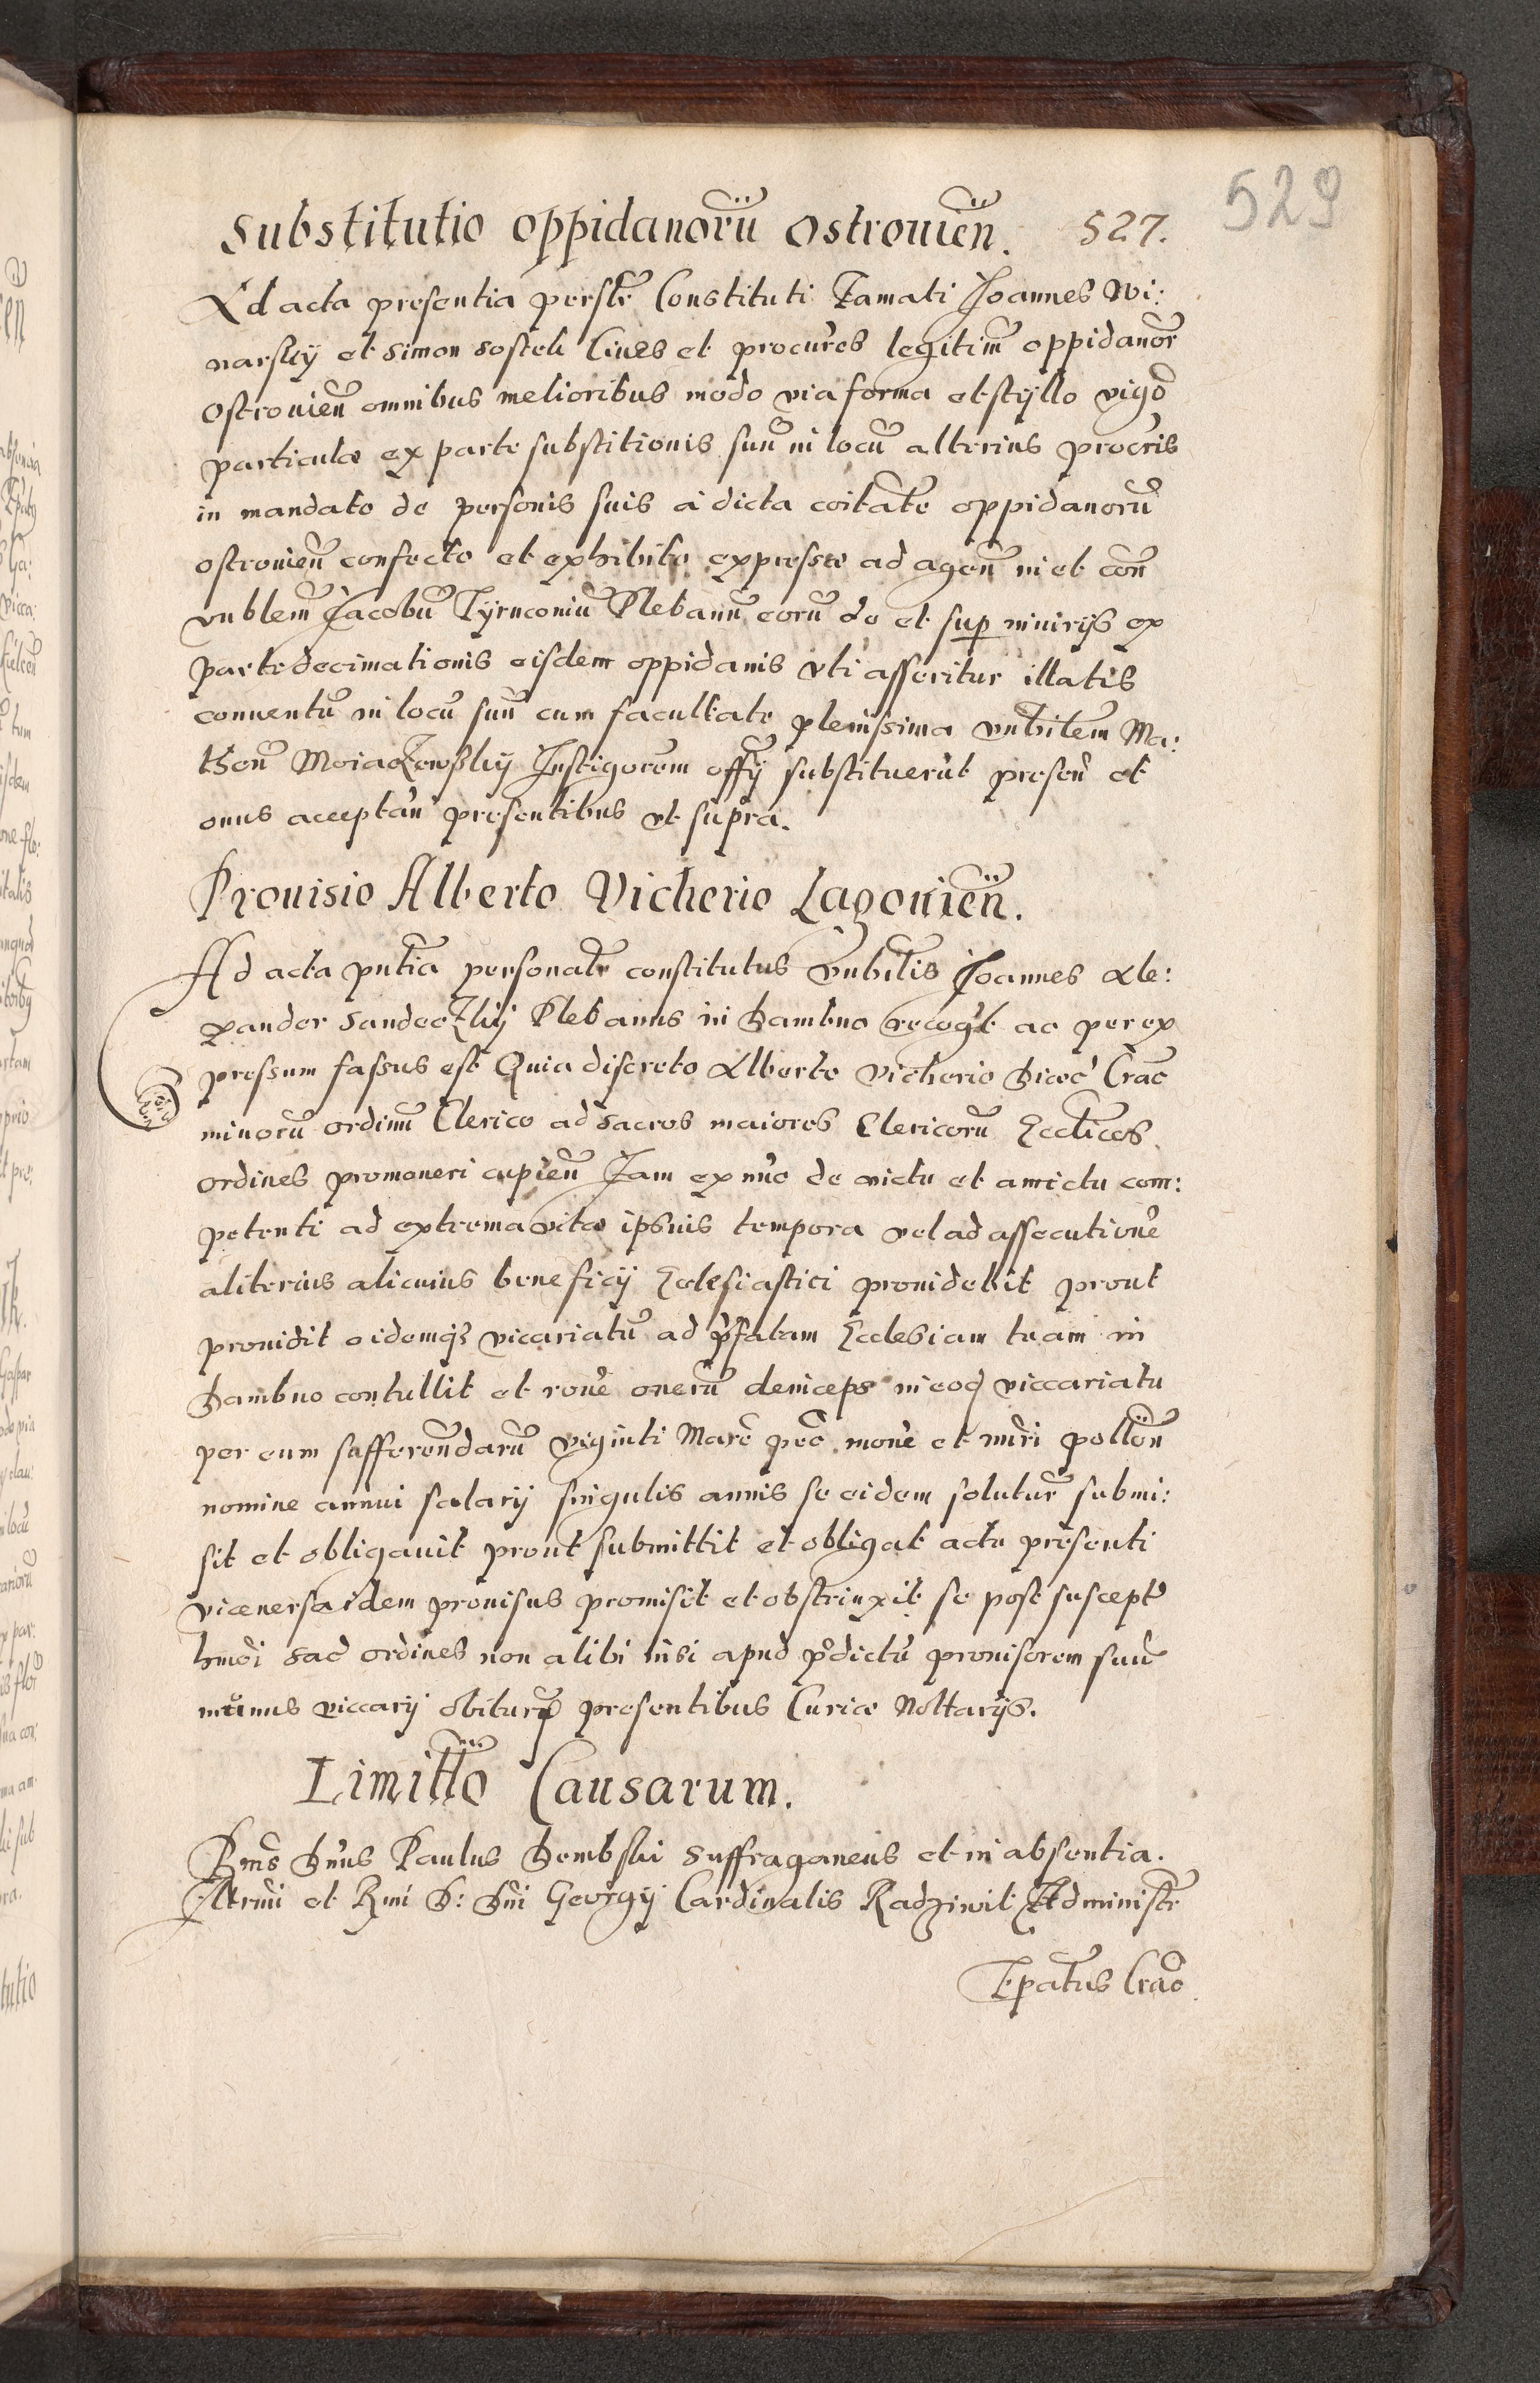 529
Substitutio Oppidanorũ Ostrouieñ. 527.
Ad acta presentia persłr Constituti Famati Joannes Wi:
narskÿ et Simon Sostek Ciues et procures legitim̃ oppidanor̃
Ostrouieñ omnibus melioribus modo via forma et stÿllo vigo͂
particulæ ex parte substitionis suũ in locũ alterius procr̃is
in mandato de personis suis a dicta coitate oppidanorũ
ostrouieñ confecto et exhibito expresso ad ageñ in et coñ
vnblem̃ Jacobũ Tÿrnconiũ Plebanũ eorũ de et sup iniurijs ex
parte decimationis eisdem oppidanis vti asseritur illatis
conuentũ in locũ suũ cum facultate plenissima vnbilem Ma:
theũ MoiaczewskÿInstigorem offÿ substituerũt preseñ et
onus acceptañ presentibus vt supra.
Prouisio Alberto Vicherio Lagouieñ.
Ad acta pñtia personatr constitutus Vnbilis Joannes Ale:
xander Sandeczkÿ Plebanus in Dambno recogt ac per ex
pressum fassus est Quia discreto Alberto Vicherio Diœc Crac̃
minorũ ordinũ Clerico ad Sacros maiores Clericorũ Ecclicos
ordines promoueri cupieñ Jam ex nũc de victu et amictu com:
petenti ad extrema vitæ ipsius tempora vel ad assecutionẽ
aliterius alicuius beneficÿ Ecclesiastici prouidebit prout
prouidit eidemq₃ vicariatũ ad p̃fatam Ecclesiam tuam in
Dambno contullit et ronẽ onerũ deinceps in eod viccariatu
per eum sufferendarũ viginti Marc̃ pec̃ monẽ et nũri polloñ
nomine annui salarÿ singulis annis se eidem solutur̃ submi:
sit et obligauit prout submittit et obligat actu presenti
viceuersa idem prouisus promisit et obstrinxit se post susceptõ
hmõi sac̃ ordines non alibi nisi apud p̃dictũ prouisorem suũ
munus viccarÿ obiturũ presentibus Curiæ Nottarÿs.
Limittõ Causarum.
Rm̃s Dñus Paulus Dembski Suffraganeus et in absentia.
Illrmi et Rmi D: Dñi Georgÿ Cardinalis Radziwil Administr̃
Epatus Crac̃